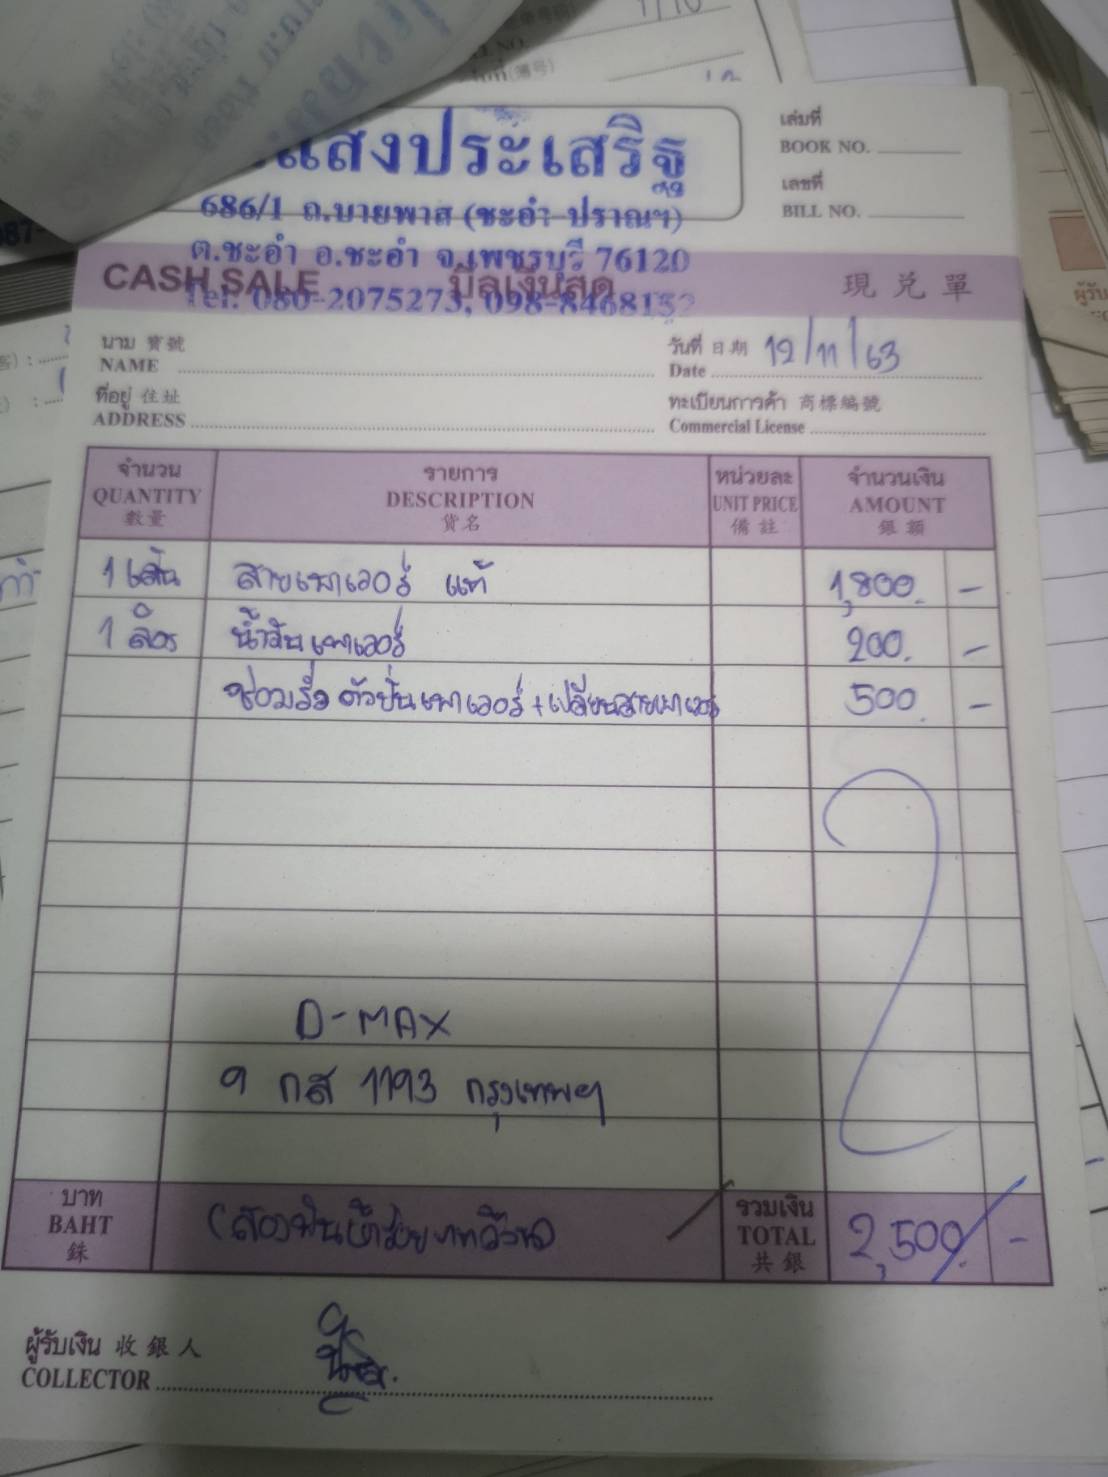 แสงประเสริฐ
686/1 ถ.บายพาส (ชะอำ-ปราณฯ)
ต.ชะอำ อ.ชะอำ จ.เพชรบุรี 76120
Tel. 080-2075273, 098-8468132
เล่มที่
BOOK NO.
เลขที่
BILL NO.
CASH SALE บิลเงินสด 現兌單
นาม 寶號
NAME
วันที่ 日期 12/11/63
Date
ที่อยู่ 住址
ADDRESS
ทะเบียนการค้า 商標編號
Commercial License
จำนวน รายการ หน่วยละ จำนวนเงิน
QUANTITY DESCRIPTION UNIT PRICE AMOUNT
數量 貨名 備註 銀額
1 เส้น สายเพาเวอร์ แท้ 1,800. -
1 ลิตร น้ำมันเพาเวอร์ 200. -
ซ่อมรั่ว ตัวปั่นเพาเวอร์ + เปลี่ยนสายเพาเวอร์ 500. -
D-MAX
9 กส 1193 กรุงเทพฯ
บาท
BAHT
銖
(สองพันห้าร้อยบาทถ้วน)
รวมเงิน
TOTAL
共銀
2,500. -
ผู้รับเงิน 收銀人
COLLECTOR